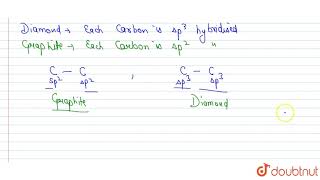 Diamond → Each Carbon is sp3 hybridised
Graphite → Each Carbon is sp2 "
C - C , C - C
sp2 sp2 sp3 sp3
Graphite Diamond
doubtnut